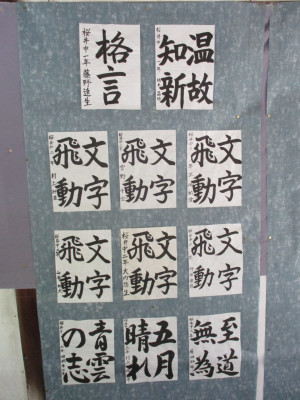 温故
知新
格言
桜井中一年 藤野達生
文字
飛動
文字
飛動
文字
飛動
文字
飛動
文字
飛動
文字
飛動
至道
無為
五月
晴れ
青雲
の志